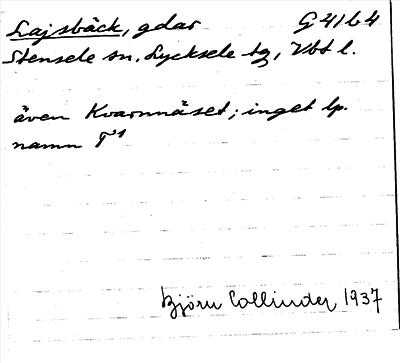 Lajsbäck, gdar G 41 b 4
Stensele sn, Lycksele tg, Vbt l.
även Kvarnnäset; inget lp.
namn
Björn Collinder 1937